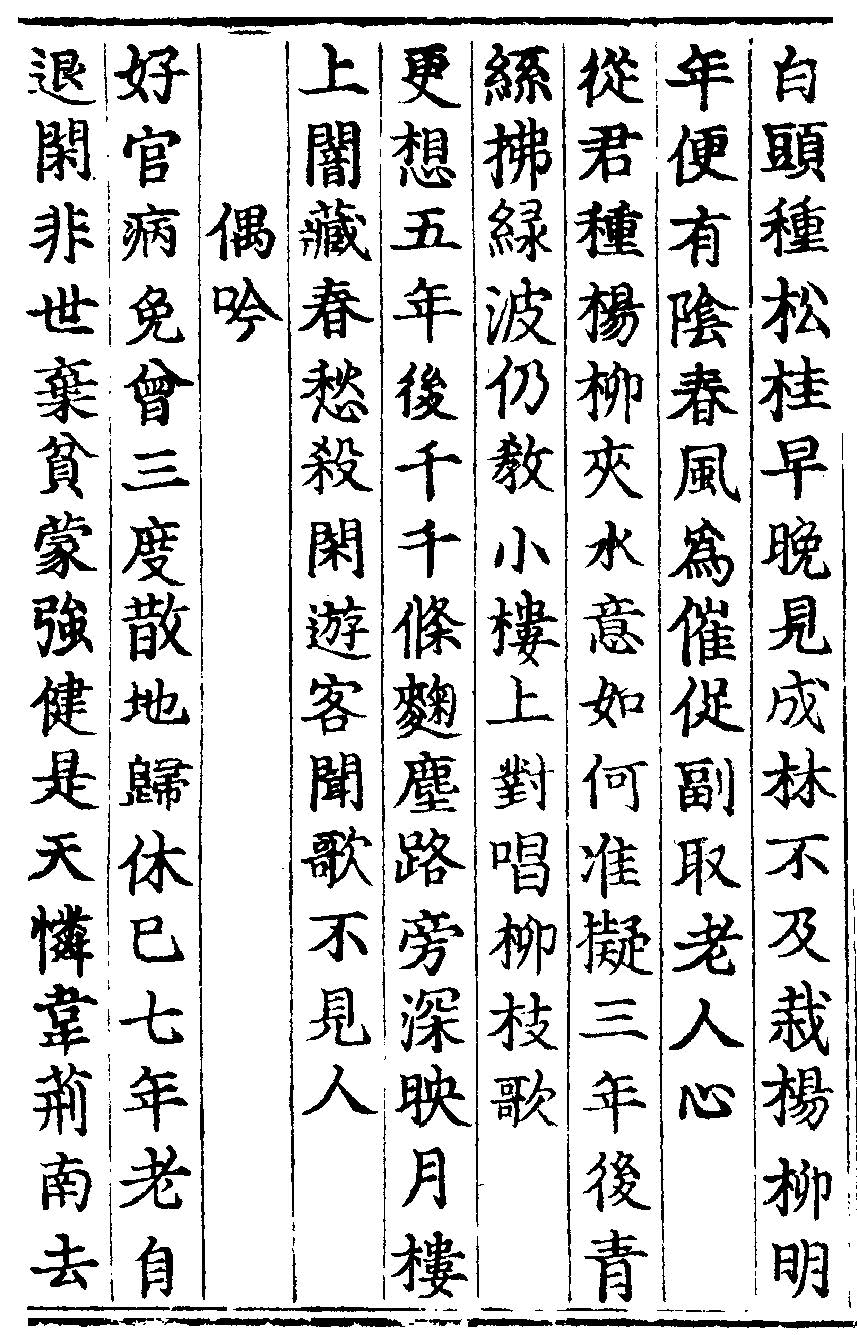 白頭種松桂早晚見成林不及栽楊柳明
年便有陰春風為催促副取老人心
從君種楊柳夾水意如何准擬三年後青
絲拂緑波仍教小樓上對唱柳枝歌
更想五年後千千條麴塵路旁深映月樓
上闇藏春愁殺閑遊客聞歌不見人
偶吟
好官病免曾三度散地歸休已七年老自
退閑非世棄貧蒙強健是天憐韋荊南去